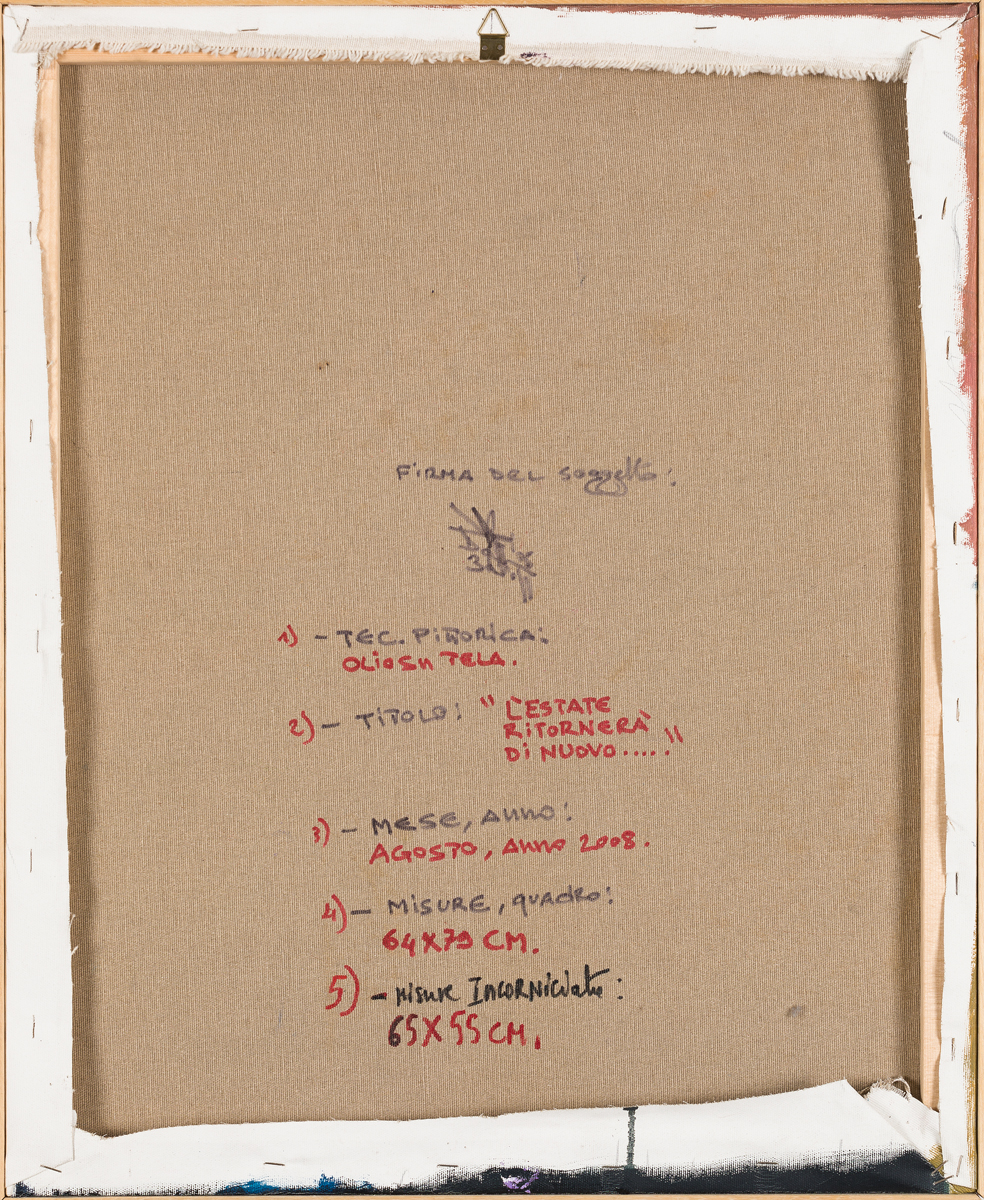 FiRMA DEL soggetto:
1) - TEC. PITTORICA:
OLiO SU TELA.
2) - TiTOLO: "L'ESTATE
RiTORNERÀ
Di NUOVO....."
3) - MESE, ANNO:
AGOSTO, ANNO 2008.
4) - MiSURE, quADRO:
64X79 CM.
5) - MisurE INCORNiCiate:
65X55 CM.